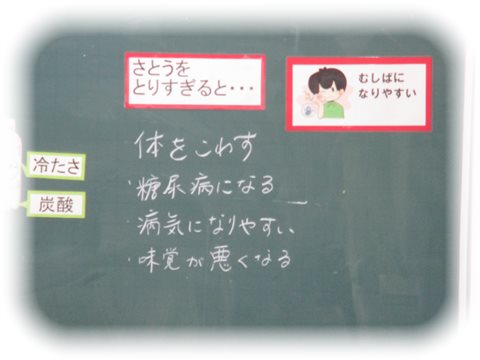 さとうを
とりすぎると・・・
むしばに
なりやすい
冷たさ
炭酸
・体をこわす
・糖尿病になる
・病気になりやすい
・味覚が悪くなる